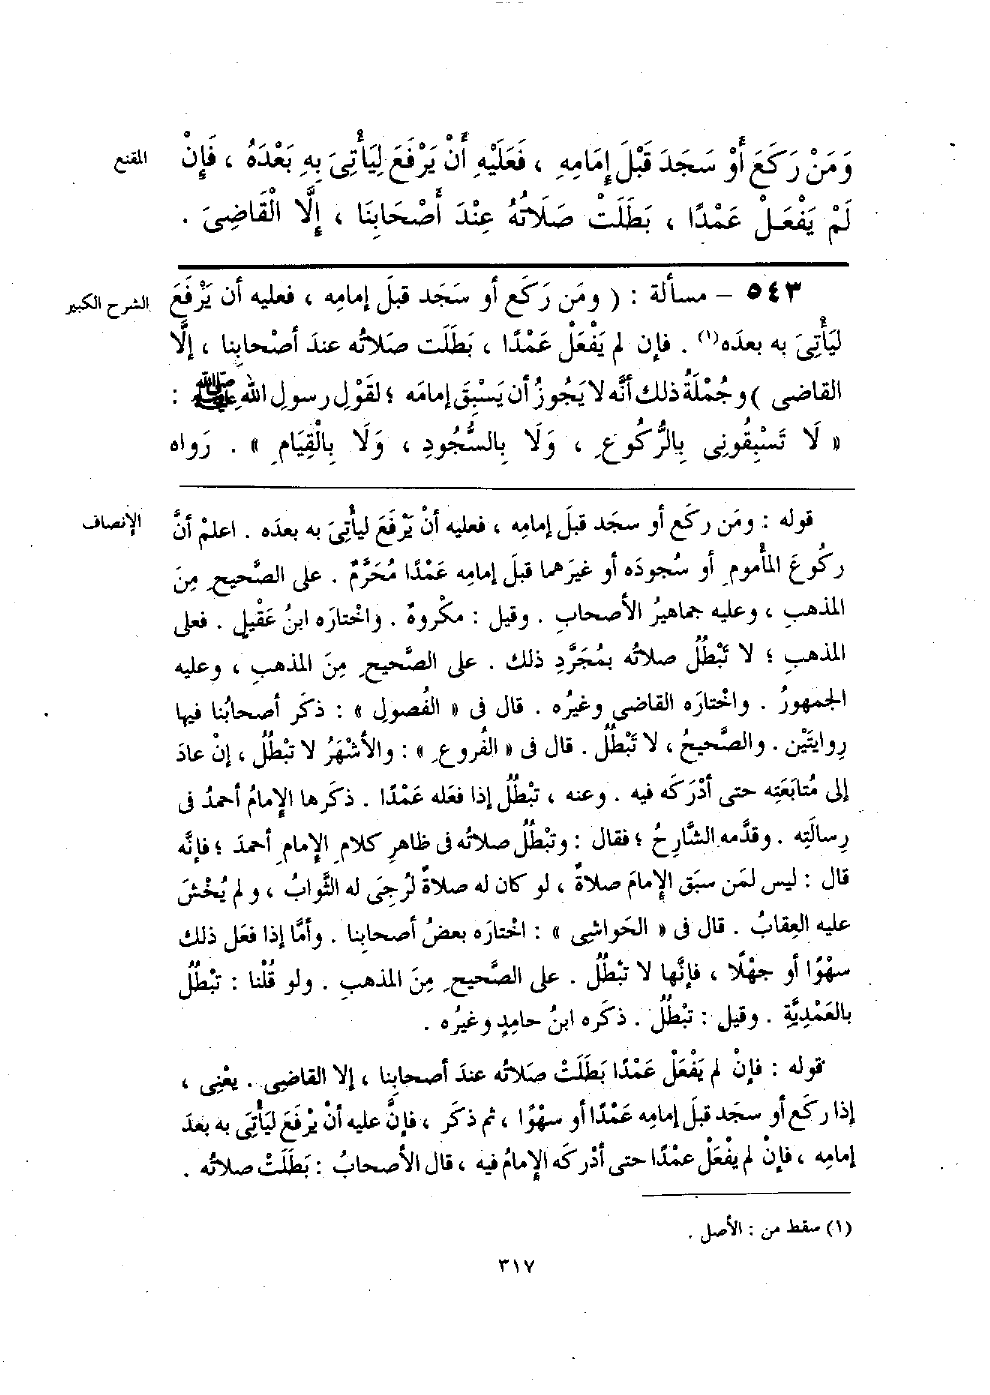 المقنع
وَمَنْ رَكَعَ أَوْ سَجَدَ قَبْلَ إِمَامِهِ ، فَعَلَيْهِ أَنْ يَرْفَعَ لِيَأْتِىَ بِهِ بَعْدَهُ ، فَإِنْ
لَمْ يَفْعَلْ عَمْدًا ، بَطَلَتْ صَلَاتُهُ عِنْدَ أَصْحَابِنَا ، إِلَّا الْقَاضِىَ .
الشرح الكبير
٥٤٣ – مسألة : ( ومَن رَكَع أو سَجَد قبلَ إمامِه ، فعليه أن يَرْفَعَ
ليَأْتِىَ به بعدَه(١) . فإن لم يَفْعَلْ عَمْدًا ، بَطَلَت صلاتُه عندَ أصْحابِنا ، إلَّا
القاضى ) وجُمْلَةُ ذلك أنَّه لا يَجُوزُ أن يَسْبِقَ إمامَه ؛ لقَوْلِ رسولِ اللهِ ﷺ :
« لَا تَسْبِقُونِى بِالرُّكُوعِ ، وَلَا بِالسُّجُودِ ، وَلَا بِالْقِيَامِ » . رَواه
الإنصاف
قوله : ومَن ركَع أو سجَد قبلَ إمامِه ، فعليه أنْ يَرْفَعَ ليأْتِىَ به بعدَه . اعلمْ أنَّ
ركُوعَ المأْمومِ أو سُجودَه أو غيرَهما قبلَ إمامِه عَمْدًا مُحَرَّمٌ . على الصَّحيحِ مِنَ
المذهبِ ، وعليه جماهيرُ الأصحابِ . وقيل : مكْروهٌ . واخْتارَه ابنُ عَقْيلٍ . فعلى
المذهبِ ؛ لا تَبْطُلُ صلاتُه بمُجَرَّدِ ذلك . على الصَّحيحِ مِنَ المذهبِ ، وعليه
الجمهورُ . واخْتارَه القاضى وغيرُه . قال فى « الفُصولِ » : ذكَر أصحابُنا فيها
رِوايتَيْن . والصَّحيحُ ، لا تَبْطُلُ . قال فى « الفُروعِ » : والأشْهَرُ لا تبْطُلُ ، إنْ عادَ
إلى مُتابَعَتِه حتى أدْرَكَه فيه . وعنه ، تبْطُلُ إذا فعَله عَمْدًا . ذكَرها الإمامُ أحمدُ فى
رِسالَتِه . وقدَّمه الشَّارِحُ ؛ فقال : وتبْطُلُ صلاتُه فى ظاهرِ كلامِ الإمامِ أحمدَ ؛ فإنَّه
قال : ليس لمَن سبَق الإمامَ صلاةٌ ، لو كان له صلاةٌ لرُجِىَ له الثَّوابُ ، ولم يُخْشَ
عليه العِقابُ . قال فى « الحَواشِى » : اخْتارَه بعضُ أصحابِنا . وأمَّا إذا فعَل ذلك
سهْوًا أو جهْلًا ، فإنَّها لا تبْطُلُ . على الصَّحيحِ مِنَ المذهبِ . ولو قُلْنا : تبْطُلُ
بالعَمْدِيَّةِ . وقيل : تبْطُلُ . ذكَره ابنُ حامِدٍ وغيرُه .
قوله : فإنْ لم يَفْعَلْ عَمْدًا بَطَلَتْ صَلاتُه عندَ أصحابِنا ، إلا القاضِى . يعْنِى ،
إذا ركَع أو سجَد قبلَ إمامِه عَمْدًا أو سهْوًا ، ثم ذكَر ، فإنَّ عليه أنْ يرْفَعَ ليَأْتَىَ به بعدَ
إمامِه ، فإنْ لم يفْعَلْ عمْدًا حتى أدْركَه الإمامُ فيه ، قال الأصحابُ : بَطَلَتْ صلاتُه .
(١) سقط من : الأصل .
٣١٧